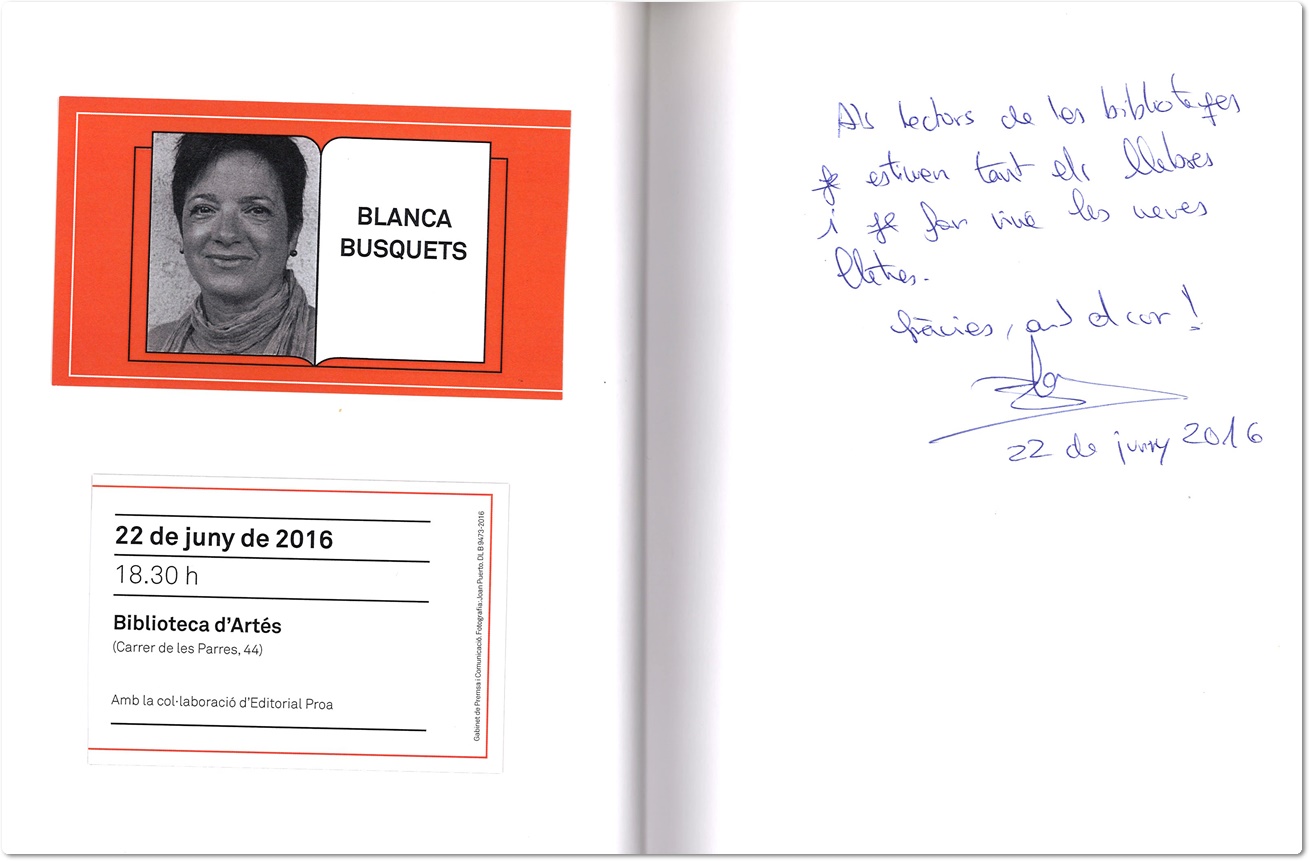 BLANCA
BUSQUETS
22 de juny de 2016
18.30 h
Biblioteca d'Artés
(Carrer de les Parres, 44)
Amb la col·laboració d'Editorial Proa
Gabinet de Premsa i Comunicació. Fotografia: Joan Puerto. DL B 9473-2016
Als lectors de les biblioteques
que estimen tant els llibres
i que fan viure les meves
lletres.
Gràcies, amb el cor!
22 de juny 2016